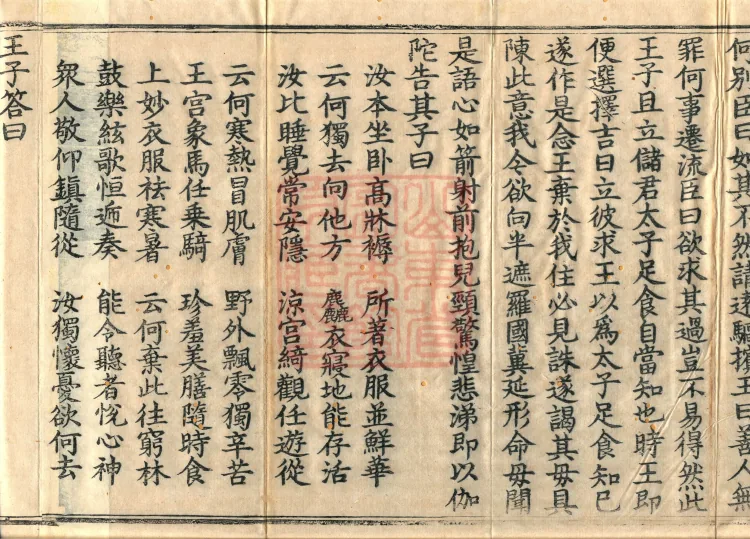 何別臣曰如其不然請逐驅擯王曰善人無
罪何事遷流臣曰欲求其過豈不易得然此
王子且立儲君太子足食自當知也時王即
便選擇吉日立彼求王以爲太子足食知已
遂作是念王棄於我住必見誅遂謁其毋具
陳此意我今欲向半遮羅國冀延形命毋聞
是語心如箭射前抱兒頸驚惶悲涕即以伽
陀告其子曰
汝本坐卧高牀褥 所著衣服並鮮華
云何獨去向他方 麤衣寢地能存活
汝比睡覺常安隱 涼宮綺觀任遊從
云何寒熱冒肌膚 野外飄零獨辛苦
王宮象馬任乗騎 珍羞美膳隨時食
上妙衣服袪寒暑 云何棄此往窮林
鼓樂絃歌恒遞奏 能令聽者悅心神
衆人敬仰鎮隨從 汝獨懷憂欲何去
王子荅曰